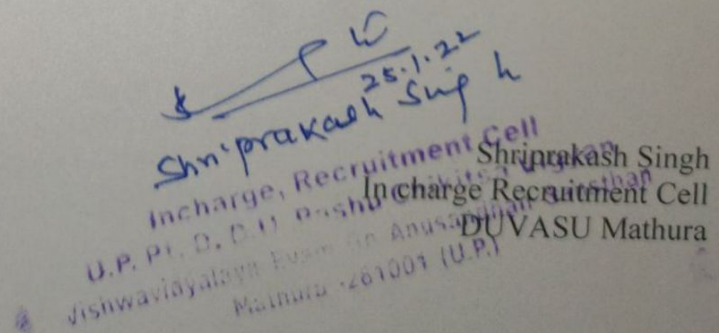 25.1.22
Shriprakash Singh
Incharge, Recruitment Cell
U.P. Pt. D. D. U. Pashu Chikitsa Vigyan
Vishwavidyalaya Evam Go Anusandhan Sansthan
Mathura -281001 (U.P.)
Shriprakash Singh
In charge Recruitment Cell
DUVASU Mathura